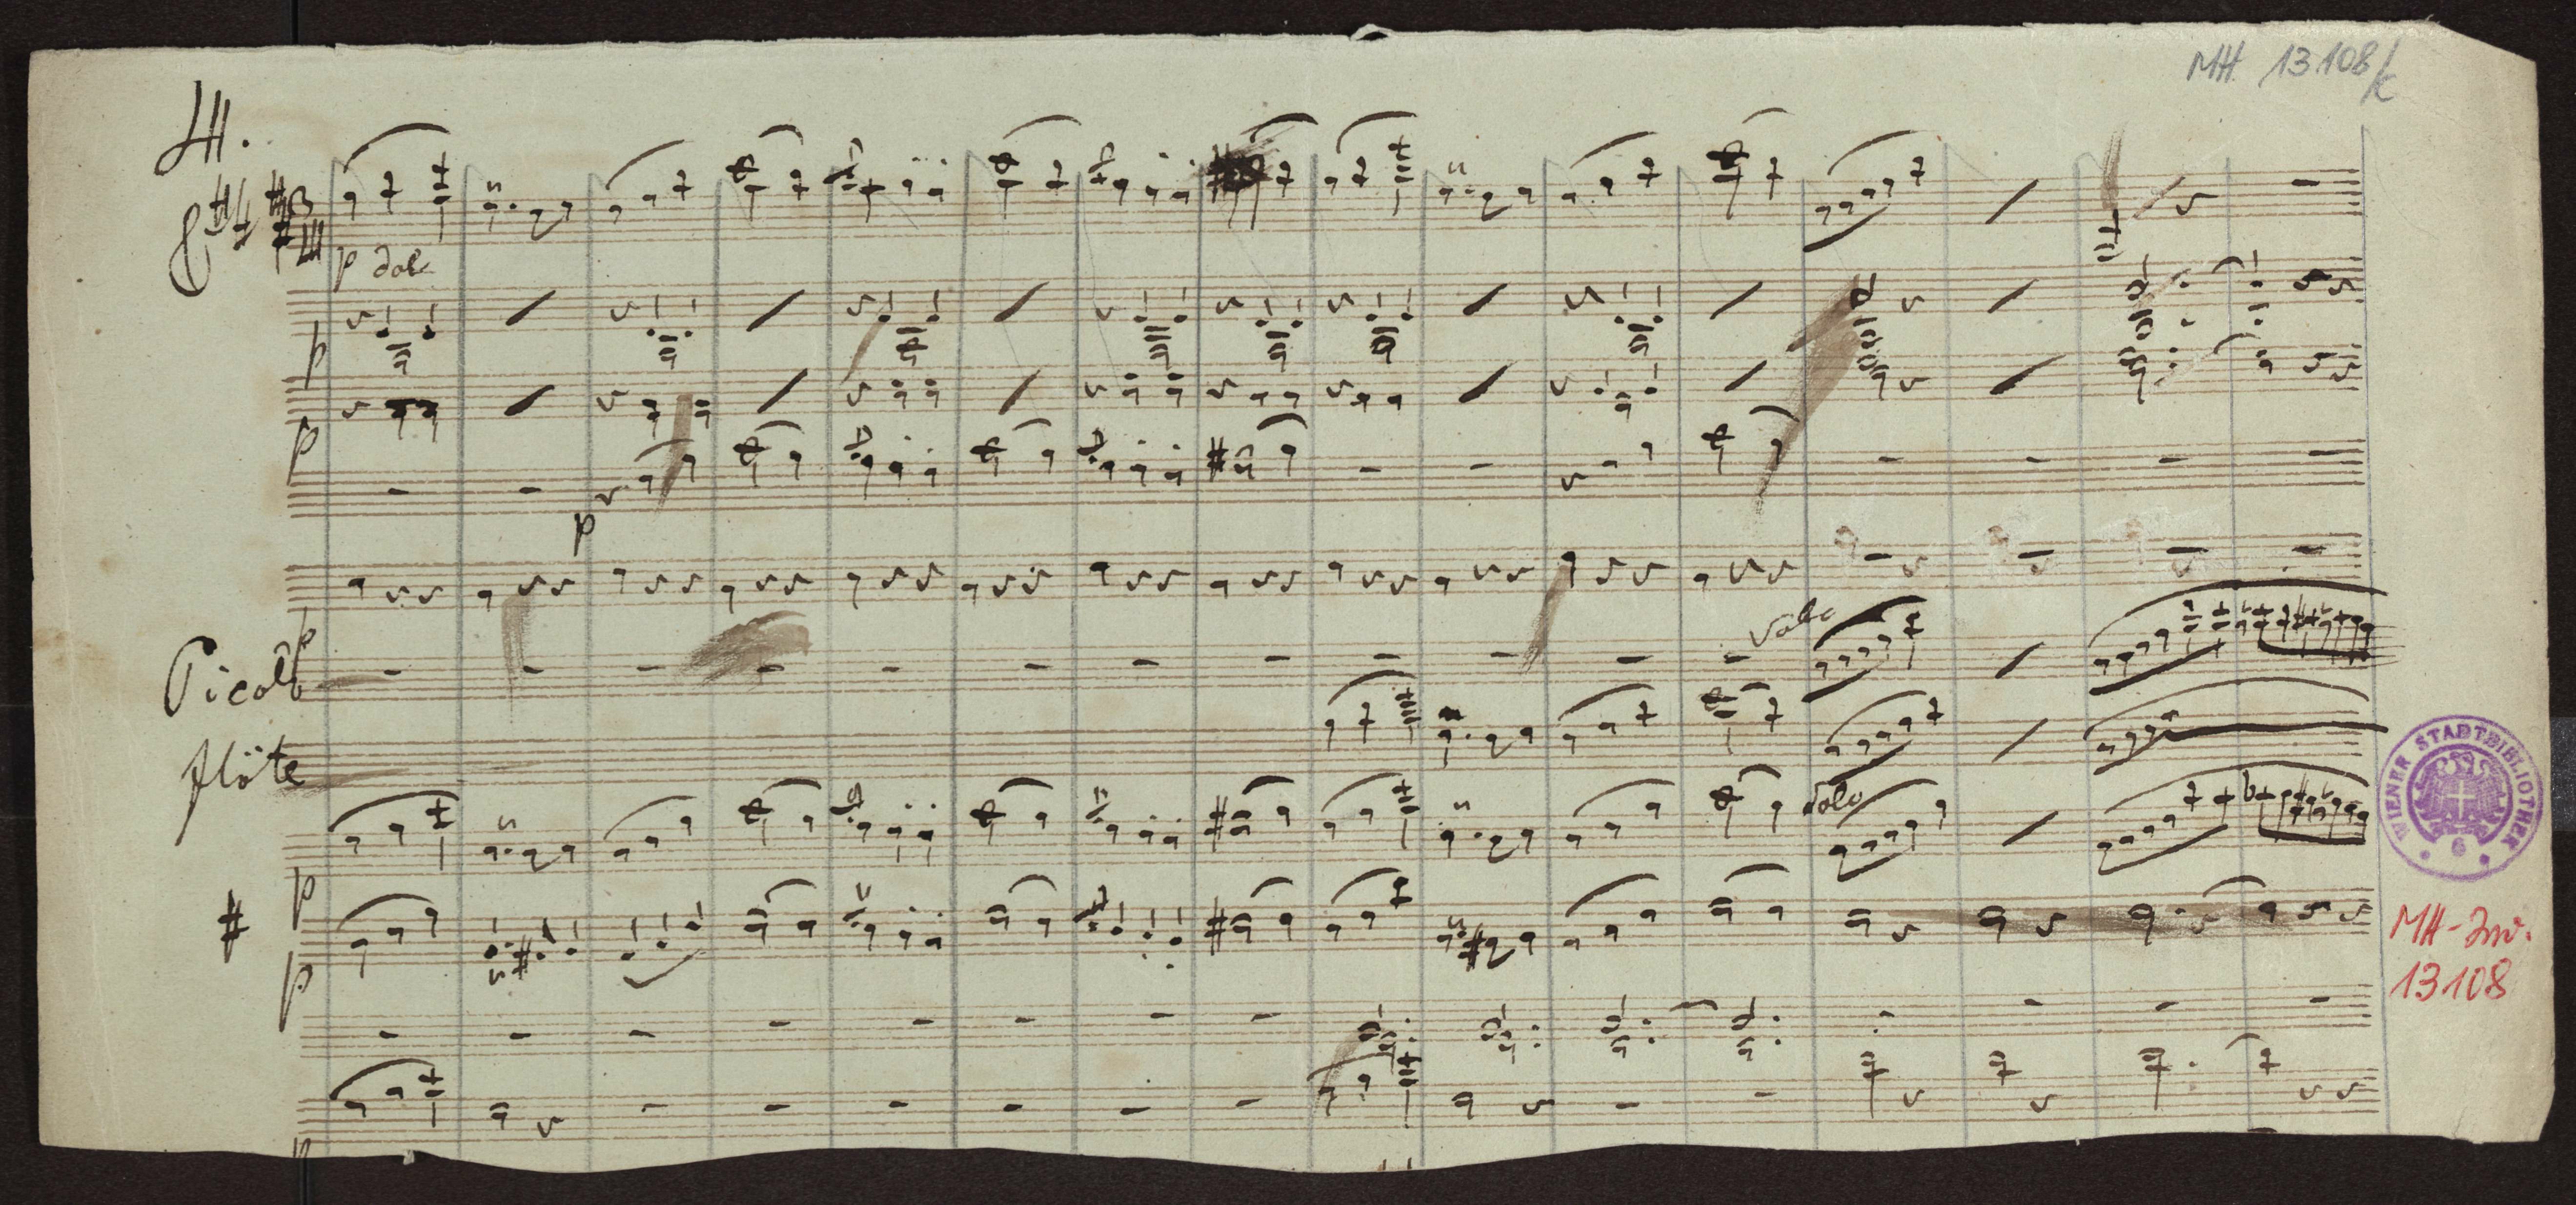 MH 13108/c
4.
p dol
p
p
p
p
Picolo
Solo
flöte
Solo
p
p
p
WIENER STADTBIBLIOTHEK
MH-Inv.
13108